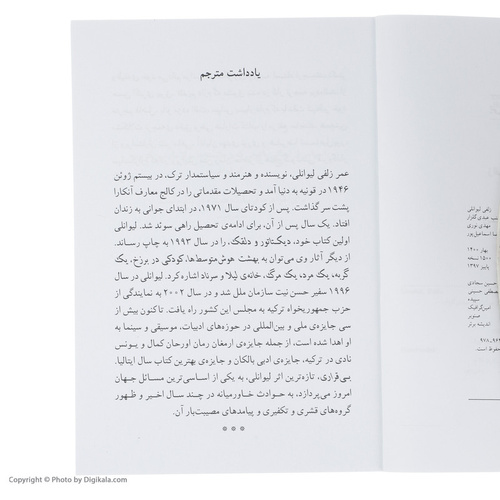 یادداشت مترجم
عمر زلفی لیوانلی، نویسنده و هنرمند و سیاستمدار ترک، در بیستم ژوئن
۱۹۴۶ در قونیه به دنیا آمد و تحصیلات مقدماتی را در کالج معارف آنکارا
پشت سر گذاشت. پس از کودتای سال ۱۹۷۱، در ابتدای جوانی به زندان
افتاد. یک سال پس از آن، برای ادامه‌ی تحصیل راهی سوئد شد. لیوانلی
اولین کتاب خود، دیکتاتور و دلقک، را در سال ۱۹۹۳ به چاپ رساند.
از دیگر آثار وی می‌توان به بهشت هوش‌متوسط‌ها، کودکی در برزخ، یک
گربه، یک مرد، یک مرگ، خانه‌ی لیلا و سرناد اشاره کرد. لیوانلی در سال
۱۹۹۶ سفیر حسن نیت سازمان ملل شد و در سال ۲۰۰۲ به نمایندگی از
حزب جمهوریخواه ترکیه به مجلس این کشور راه یافت. تاکنون بیش از
سی جایزه‌ی ملی و بین‌المللی در حوزه‌های ادبیات، موسیقی و سینما به
او اهدا شده است، از جمله جایزه‌ی ارمغان رمان اورحان کمال و یونس
نادی در ترکیه، جایزه‌ی ادبی بالکان و جایزه‌ی بهترین کتاب سال ایتالیا.
بی‌قراری، تازه‌ترین اثر لیوانلی، به یکی از اساسی‌ترین مسائل جهان
امروز می‌پردازد، به حوادث خاورمیانه در چند سال اخیر و ظهور
گروه‌های قشری و تکفیری و پیامدهای مصیبت‌بار آن.
* * *
زلفی لیوانلی
مهدی نوری
بهار ۱۴۰۰
۱۵۰۰ نسخه
پاییز ۱۳۹۷
حسین سجادی
مصطفی حسینی
سپیده
امین‌گرافیک
صنوبر
اندیشه برتر
Copyright © Photo by Digikala.com